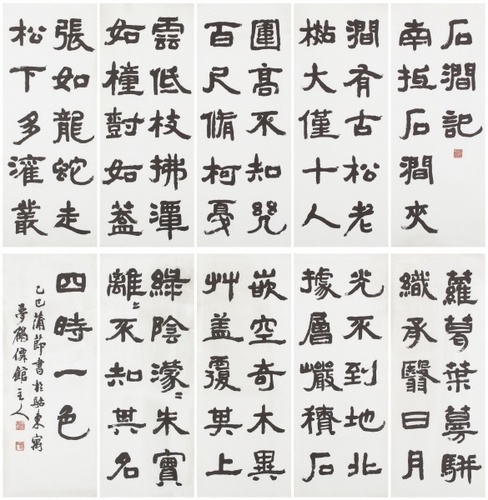 石澗記
南抵石澗夾
澗有古松老
檆大僅十人
圍高不知幾
百尺脩柯戛
雲低枝拂潭
如橦尌如蓋
張如龍蛇走
松下多灌叢
蘿蔦葉蔓駢
織承翳日月
光不到地北
據層巖積石
嵌空奇木異
艸蓋覆其上
綠陰濛〻朱實
離〻不知其名
四時一色
乙巳蒲節書於東寓
夢鶴僊館主人